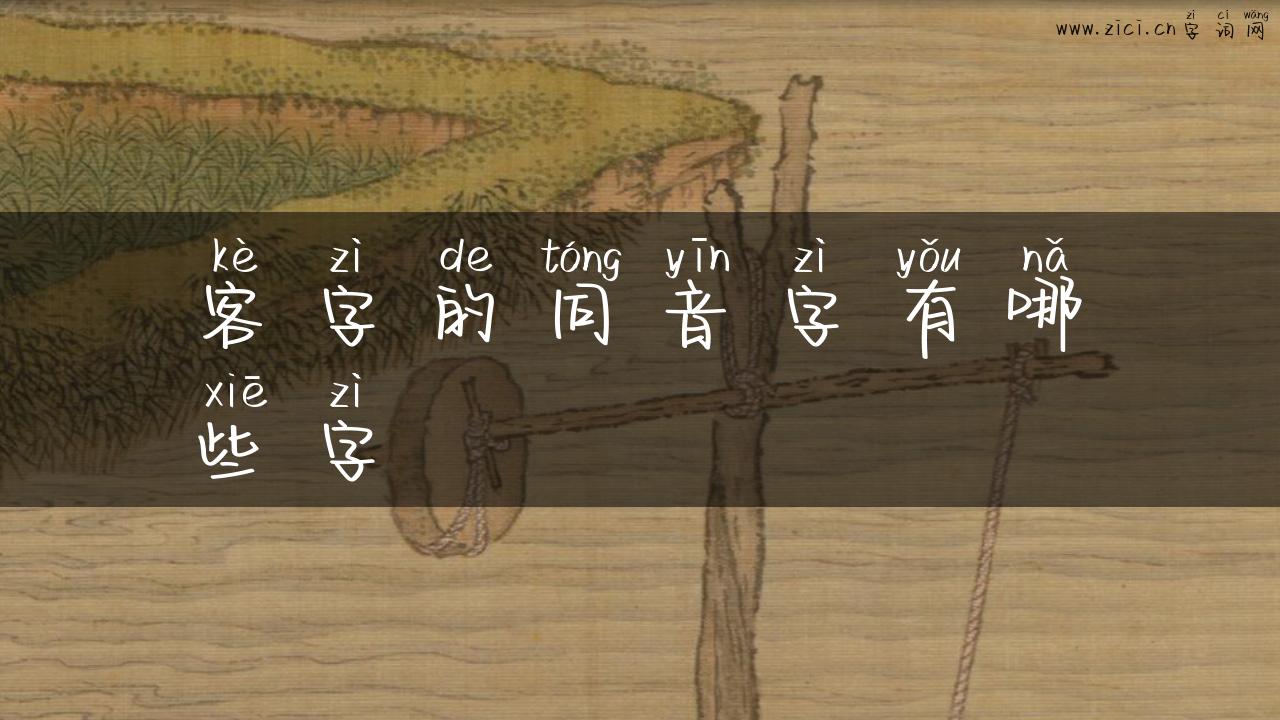 zì cí wǎng
www.zici.cn 字词网
kè zì de tóng yīn zì yǒu nǎ
客字的同音字有哪
xiē zì
些字